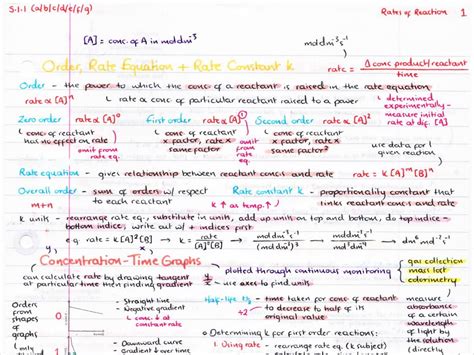 5.1.1 (a/b/c/d/e/f/g)
Rates of Reaction 1
[A] = conc. of A in moldm⁻³ moldm⁻³s⁻¹
Order, Rate Equation + Rate Constant k rate = Δ conc product/reactant
time
Order - the power to which the conc of a reactant is raised in the rate equation
rate ∝ [A]ⁿ rate ∝ conc of particular reactant raised to a power
determined experimentally - measure initial rate at dif. [A]
Zero order First order Second order
rate ∝ [A]⁰ rate ∝ [A]¹ rate ∝ [A]²
conc of reactant has no effect on rate
omit from rate eq.
conc of reactant x factor, rate x same factor
omit from rate eq.
conc of reactant x factor, rate x factor²
use data for given reaction
Rate equation - gives relationship between reactant concs and rate rate = k[A]ᵐ[B]ⁿ
Overall order - sum of orders w/ respect to each reactant
m+n
Rate constant k - proportionality constant that links reactant concs and rate
k ↑ as temp. ↑
k units - rearrange rate eq., substitute in units, add up units on top and bottom, do top indices -
bottom indices, write out w/ + indices first
e.g. rate = k[A]²[B] → k = rate/[A]²[B] → moldm⁻³s⁻¹/(moldm⁻³)²(moldm⁻³) → moldm⁻³s⁻¹/(moldm⁻³)³ → dm⁶ mol⁻² s⁻¹
Concentration-Time Graphs
gas collection
mass lost
colorimetry
can calculate rate by drawing tangent
at particular time then finding gradient
y/x
use axes to find units
plotted through continuous monitoring
Orders from shapes of graphs
0
- Straight line
- Negative gradient
- conc. ↓ at constant rate
Half-life t½ - time taken for conc of reactant
÷2 to decrease to half of its original value
measure absorbance of a certain
- Downward curve
- Gradient
Determining k for first order reactions:
1. Using rate - rearrange rate eq. (k subject)